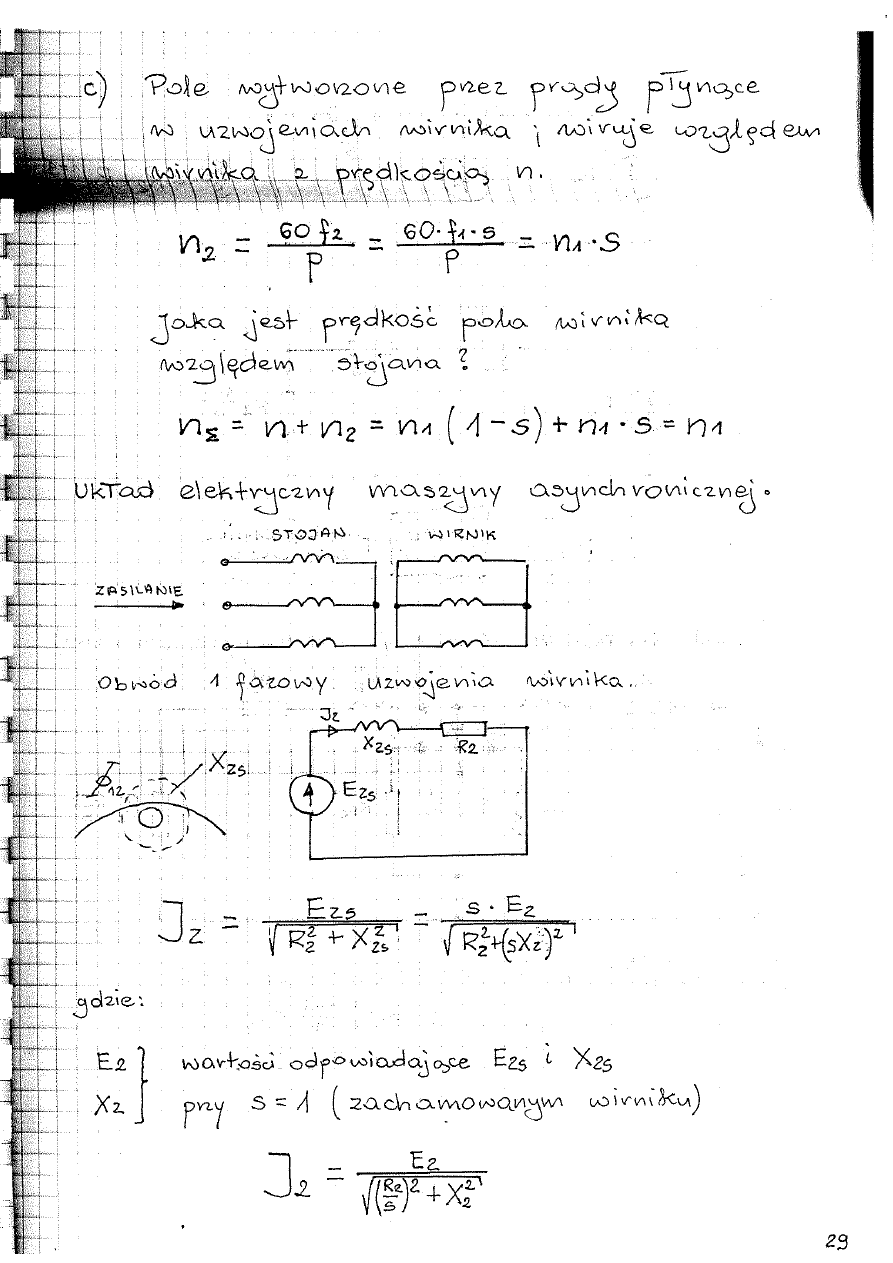 c) Pole wytworzone przez prądy płynące
w uzwojeniach wirnika i wiruje względem
wirnika z prędkością n.
n₂ = 60 f₂ / p = 60·f₁·s / p = n₁·s
Jaka jest prędkość pola wirnika
względem stojana?
n_Σ = n + n₂ = n₁ (1-s) + n₁·s = n₁
Układ elektryczny maszyny asynchronicznej.
STOJAN WIRNIK
ZASILANIE
Obwód 1 fazowy uzwojenia wirnika.
J₂
X₂s R₂
ϕ₁₂ X₂s
E₂s
J₂ = E₂s / √(R₂² + X₂s²) = s·E₂ / √(R₂²+(sX₂)²)
gdzie:
E₂ } wartości odpowiadające E₂s i X₂s
X₂ } przy s = 1 (zachamowanym wirniku)
J₂ = E₂ / √((R₂/s)² + X₂²)
29